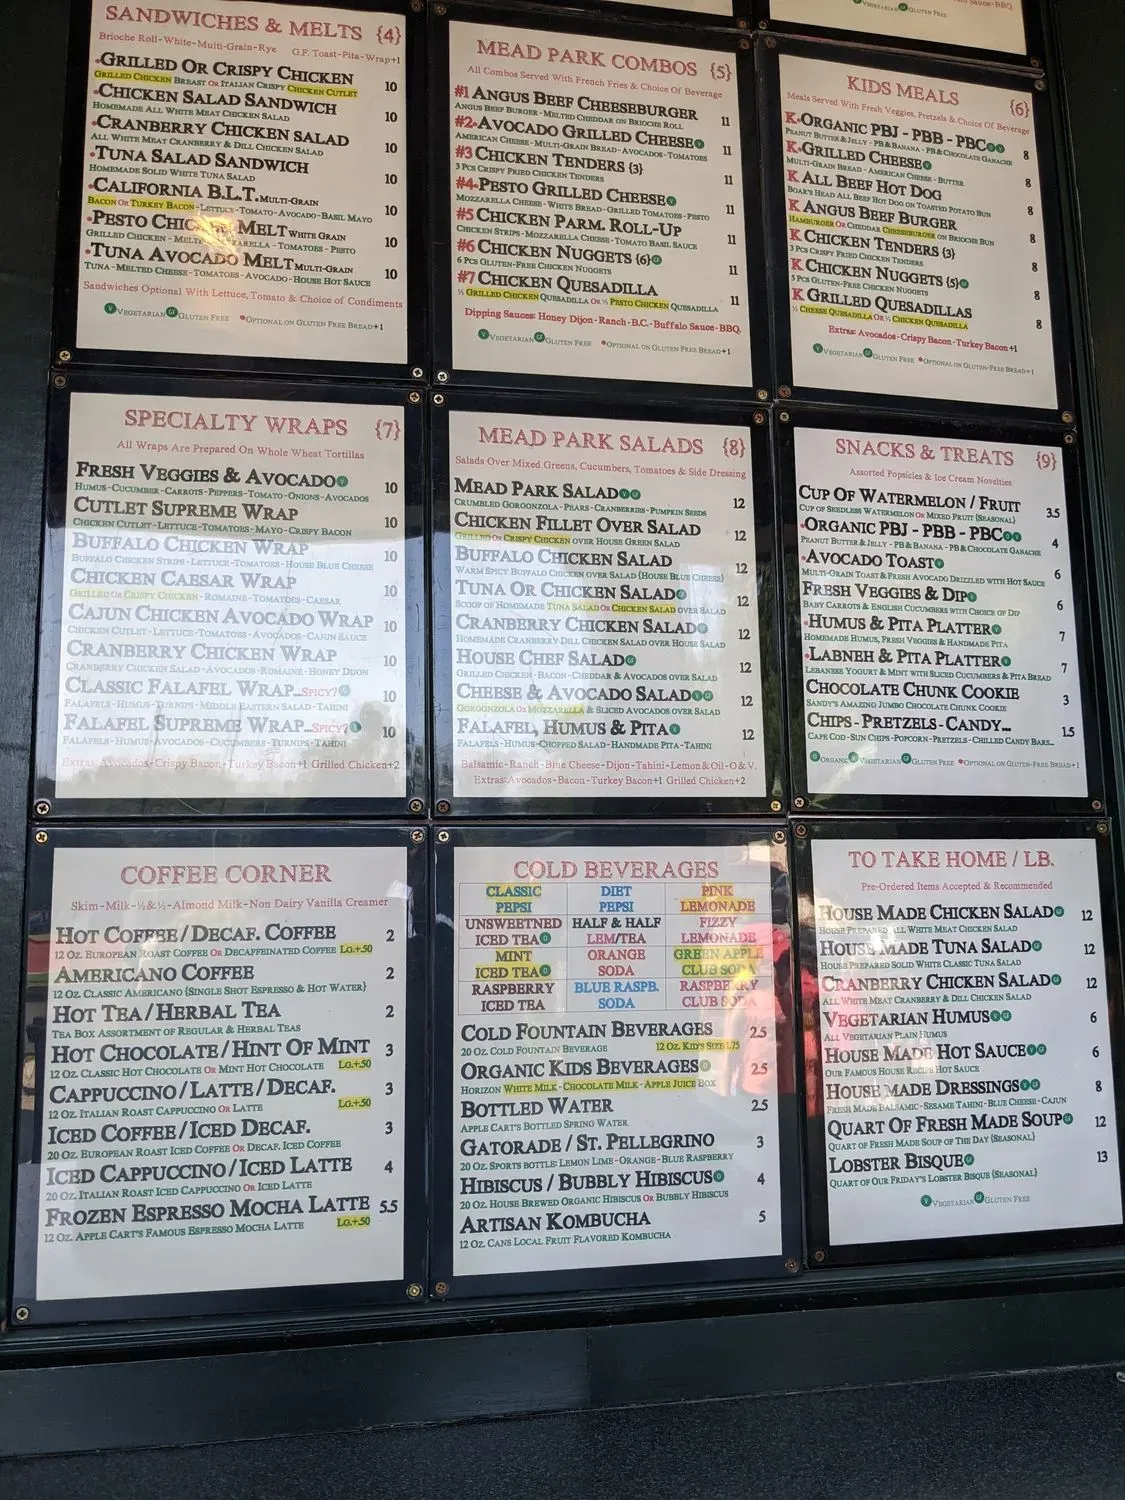 Sauce-BBQ.
Vegetarian GF Gluten Free
SANDWICHES & MELTS {4}
Brioche Roll-White-Multi-Grain-Rye G.F. Toast-Pita-Wrap+1
•Grilled Or Crispy Chicken 10
Grilled Chicken Breast or Italian Crispy Chicken Cutlet
•Chicken Salad Sandwich 10
Homemade All White Meat Chicken Salad
•Cranberry Chicken Salad 10
All White Meat Cranberry & Dill Chicken Salad
•Tuna Salad Sandwich 10
Homemade Solid White Tuna Salad
•California B.L.T. Multi-Grain 10
Bacon or Turkey Bacon-Lettuce-Tomato-Avocado-Basil Mayo
•Pesto Chicken Melt White Grain 10
Grilled Chicken - Melted Mozzarella - Tomatoes - Pesto
•Tuna Avocado Melt Multi-Grain 10
Tuna-Melted Cheese-Tomatoes-Avocado-House Hot Sauce
Sandwiches Optional With Lettuce, Tomato & Choice of Condiments
V Vegetarian GF Gluten Free •Optional on Gluten Free Bread+1
MEAD PARK COMBOS {5}
All Combos Served With French Fries & Choice Of Beverage
#1 Angus Beef Cheeseburger 11
Angus Beef Burger-Melted Cheddar on Brioche Roll
#2•Avocado Grilled Cheese V 11
American Cheese - Multi-Grain Bread - Avocados - Tomatoes
#3 Chicken Tenders {3} 11
3 Pcs Crispy Fried Chicken Tenders
#4•Pesto Grilled Cheese V 11
Mozzarella Cheese - White Bread - Grilled Tomatoes - Pesto
#5 Chicken Parm. Roll-Up 11
Chicken Strips - Mozzarella Cheese - Tomato Basil Sauce
#6 Chicken Nuggets {6} GF 11
6 Pcs Gluten-Free Chicken Nuggets
#7 Chicken Quesadilla 11
½ Grilled Chicken Quesadilla Or ½ Pesto Chicken Quesadilla
Dipping Sauces: Honey Dijon-Ranch-B.C.-Buffalo Sauce-BBQ.
V Vegetarian GF Gluten Free •Optional on Gluten Free Bread+1
KIDS MEALS {6}
Meals Served With Fresh Veggies, Pretzels & Choice Of Beverage
K•Organic PBJ - PBB - PBC 8
Peanut Butter & Jelly - PB & Banana - PB & Chocolate Ganache
K•Grilled Cheese V 8
Multi-Grain Bread - American Cheese - Butter
K All Beef Hot Dog 8
Boar's Head All Beef Hot Dog on Toasted Potato Bun
K Angus Beef Burger 8
Hamburger or Cheddar Cheeseburger on Brioche Bun
K Chicken Tenders {3} 8
3 Pcs Crispy Fried Chicken Tenders
K Chicken Nuggets {5} GF 8
5 Pcs Gluten-Free Chicken Nuggets
K Grilled Quesadillas 8
½ Cheese Quesadilla Or ½ Chicken Quesadilla
Extras: Avocados-Crispy Bacon-Turkey Bacon+1
V Vegetarian GF Gluten Free •Optional on Gluten-Free Bread+1
SPECIALTY WRAPS {7}
All Wraps Are Prepared On Whole Wheat Tortillas
Fresh Veggies & Avocado V 10
Humus-Cucumber-Carrots-Peppers-Tomato-Onions-Avocados
Cutlet Supreme Wrap 10
Chicken Cutlet-Lettuce-Tomatoes-Mayo-Crispy Bacon
Buffalo Chicken Wrap 10
Buffalo Chicken Strips-Lettuce-Tomatoes-House Blue Cheese
Chicken Caesar Wrap 10
Grilled or Crispy Chicken-Romaine-Tomatoes-Caesar
Cajun Chicken Avocado Wrap 10
Chicken Cutlet-Lettuce-Tomatoes-Avocados-Cajun Sauce
Cranberry Chicken Wrap 10
Cranberry Chicken Salad-Avocados-Romaine-Honey Dijon
Classic Falafel Wrap_Spicy? V 10
Falafels-Humus-Turnips-Middle Eastern Salad-Tahini
Falafel Supreme Wrap_Spicy? V 10
Falafels-Humus-Avocados-Cucumbers-Turnips-Tahini
Extras: Avocados-Crispy Bacon-Turkey Bacon+1 Grilled Chicken+2
MEAD PARK SALADS {8}
Salads Over Mixed Greens, Cucumbers, Tomatoes & Side Dressing
Mead Park Salad V GF 12
Crumbled Gorgonzola-Pears-Cranberries-Pumpkin Seeds
Chicken Fillet Over Salad 12
Grilled or Crispy Chicken over House Green Salad
Buffalo Chicken Salad 12
Warm Spicy Buffalo Chicken over Salad {House Blue Cheese}
Tuna Or Chicken Salad GF 12
Scoop of Homemade Tuna Salad or Chicken Salad over Salad
Cranberry Chicken Salad GF 12
Homemade Cranberry Dill Chicken Salad over House Salad
House Chef Salad GF 12
Grilled Chicken-Bacon-Cheddar & Avocados over Salad
Cheese & Avocado Salad V GF 12
Gorgonzola or Mozzarella & Sliced Avocados over Salad
Falafel, Humus & Pita V 12
Falafels-Humus-Chopped Salad-Handmade Pita-Tahini
Balsamic-Ranch-Blue Cheese-Dijon-Tahini-Lemon & Oil-O & V.
Extras: Avocados-Bacon-Turkey Bacon+1 Grilled Chicken+2
SNACKS & TREATS {9}
Assorted Popsicles & Ice Cream Novelties
Cup Of Watermelon / Fruit 3.5
Cup of Seedless Watermelon or Mixed Fruit {Seasonal}
•Organic PBJ - PBB - PBC 4
Peanut Butter & Jelly - PB & Banana - PB & Chocolate Ganache
•Avocado Toast V 6
Multi-Grain Toast & Fresh Avocado Drizzled with Hot Sauce
Fresh Veggies & Dip 6
Baby Carrots & English Cucumbers with Choice of Dip
•Humus & Pita Platter V 7
Homemade Humus, Fresh Veggies & Handmade Pita
•Labneh & Pita Platter V 7
Lebanese Yogurt & Mint with Sliced Cucumbers & Pita Bread
Chocolate Chunk Cookie 3
Sandy's Amazing Jumbo Chocolate Chunk Cookie
Chips - Pretzels - Candy... 1.5
Cape Cod-Sun Chips-Popcorn-Pretzels-Chilled Candy Bars...
O Organic V Vegetarian GF Gluten Free •Optional on Gluten-Free Bread+1
COFFEE CORNER
Skim-Milk-½&½-Almond Milk-Non Dairy Vanilla Creamer
Hot Coffee/Decaf. Coffee 2
12 Oz. European Roast Coffee Or Decaffeinated Coffee Lg.+.50
Americano Coffee 2
12 Oz. Classic Americano {Single Shot Espresso & Hot Water}
Hot Tea/Herbal Tea 2
Tea Box Assortment of Regular & Herbal Teas
Hot Chocolate/Hint Of Mint 3
12 Oz. Classic Hot Chocolate or Mint Hot Chocolate Lg.+.50
Cappuccino/Latte/Decaf. 3
12 Oz. Italian Roast Cappuccino Or Latte Lg.+.50
Iced Coffee/Iced Decaf. 3
20 Oz. European Roast Iced Coffee Or Decaf. Iced Coffee
Iced Cappuccino/Iced Latte 4
20 Oz. Italian Roast Iced Cappuccino or Iced Latte
Frozen Espresso Mocha Latte 5.5
12 Oz. Apple Cart's Famous Espresso Mocha Latte Lg.+.50
COLD BEVERAGES
CLASSIC PEPSI DIET PEPSI PINK LEMONADE
UNSWEETNED ICED TEA HALF & HALF LEM/TEA FIZZY LEMONADE
MINT ICED TEA ORANGE SODA GREEN APPLE CLUB SODA
RASPBERRY ICED TEA BLUE RASPB. SODA RASPBERRY CLUB SODA
Cold Fountain Beverages 2.5
20 Oz. Cold Fountain Beverage 12 Oz. Kid's Size 1.75
Organic Kids Beverages 2.5
Horizon White Milk-Chocolate Milk-Apple Juice Box
Bottled Water 2.5
Apple Cart's Bottled Spring Water
Gatorade / St. Pellegrino 3
20 Oz. Sports bottle: Lemon Lime-Orange-Blue Raspberry
Hibiscus / Bubbly Hibiscus 4
20 Oz. House Brewed Organic Hibiscus Or Bubbly Hibiscus
Artisan Kombucha 5
12 Oz. Cans Local Fruit Flavored Kombucha
TO TAKE HOME / LB.
Pre-Ordered Items Accepted & Recommended
House Made Chicken Salad GF 12
House Prepared All White Meat Chicken Salad
House Made Tuna Salad GF 12
House Prepared Solid White Classic Tuna Salad
Cranberry Chicken Salad GF 12
All White Meat Cranberry & Dill Chicken Salad
Vegetarian Humus V GF 6
All Vegetarian Plain Humus
House Made Hot Sauce V GF 6
Our Famous House Recipe Hot Sauce
House Made Dressings V GF 8
Fresh Made Balsamic-Sesame Tahini-Blue Cheese-Cajun
Quart Of Fresh Made Soup GF 12
Quart of Fresh Made Soup of The Day {Seasonal}
Lobster Bisque GF 13
Quart of Our Friday's Lobster Bisque {Seasonal}
V Vegetarian GF Gluten Free